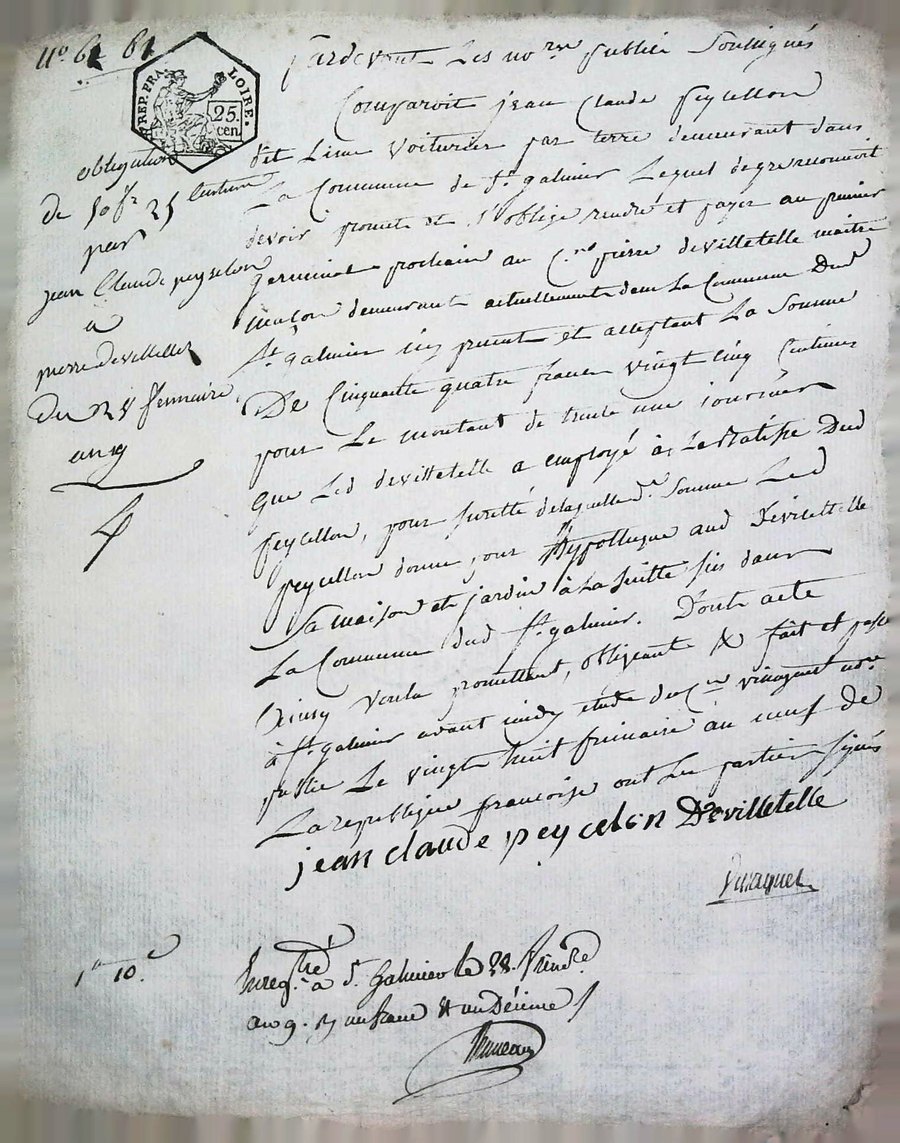 N.° 61 61
REP. FRA.
LOIRE.
25.
cen.
obligation
de 50 fr 25 centimes
par
jean Claude peyselon
a
pierre devilletelle
du 28 frimaire
an 9
pardevant Les no.res publics Soussignés
Comparoit jean Claude peycellon
dit Voiturier par terre demeurant dans
La Commune de St. galmier Lequel de gre reconnoit
devoir promet et s'oblige rendre et payer au premier
germinal prochain au C.en pierre devilletelle maitre
maçon demeurant actuellement dans La Commune Dud
St. galmier icy present et acceptant La Somme
De Cinquante quatre francs vingt cinq Centimes
pour Le montant de trente une journées
que Led devilletelle a employé à La Batisse Dud
peycellon, pour suretté de laquelle d.e Somme Led
peycellon donne pour hypotheque aud Devilletelle
Sa maison et jardin à La suitte sis dans
La Commune dud St. galmier. Dont acte
Ainsy voulu promettant, obligeant & fait et passé
à St. galmier avant midy étude du C.en vinaquet no.re
public Le vingt huit frimaire an neuf de
La republique francoise ont Les parties signés
jean claude peycelon Devilletelle
Vinaquet
1 f 10 c
Enreg.tré à St. Galmier le 28. frim.re
an 9. R un franc & un Décime